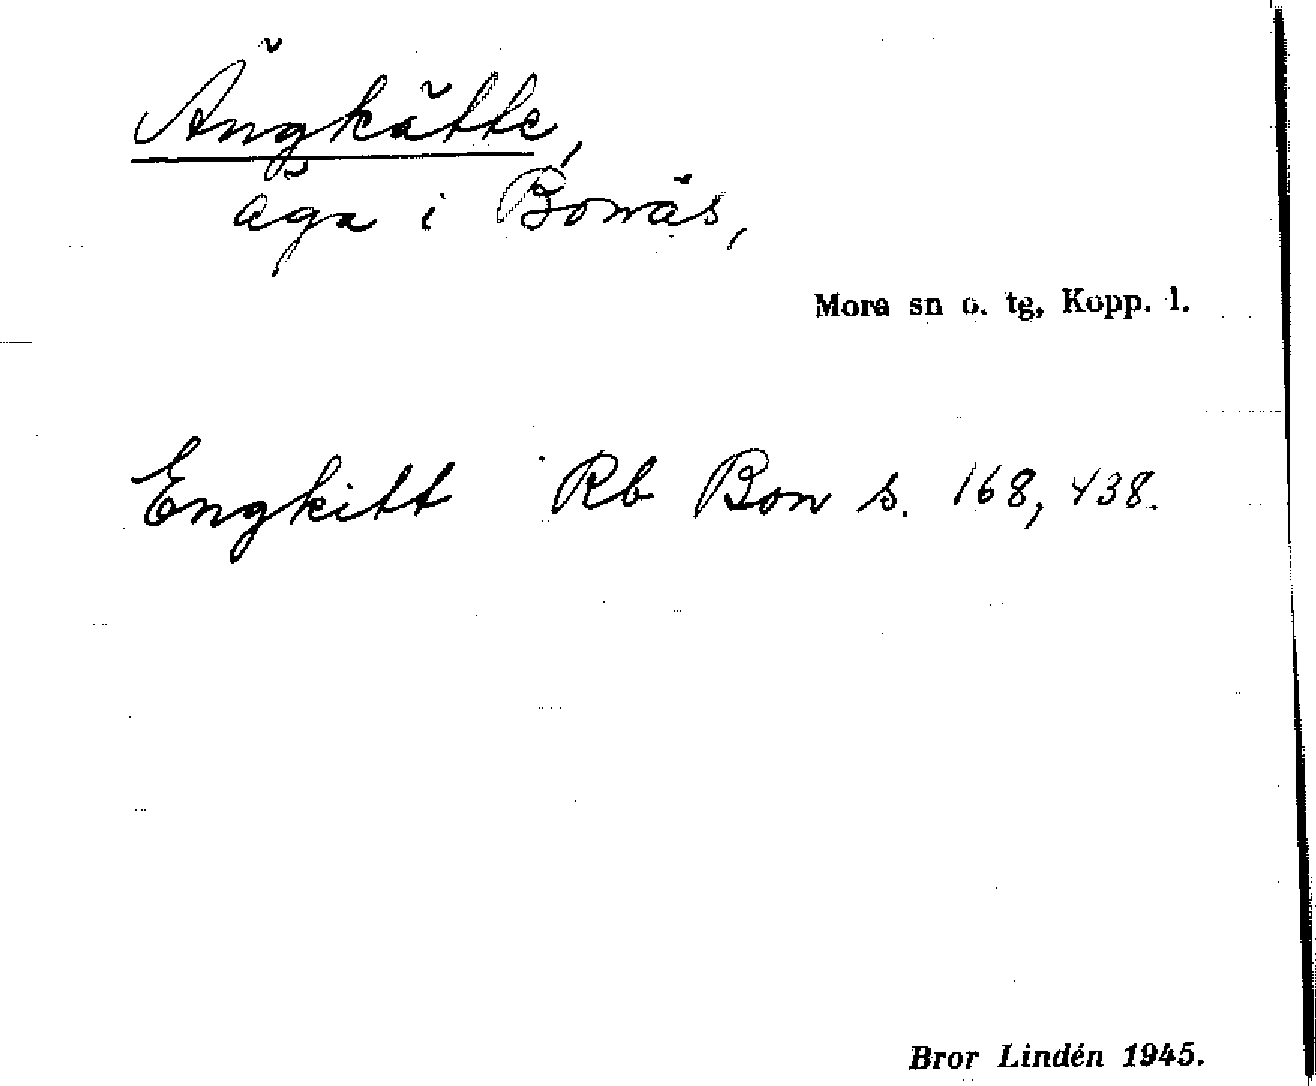 Ängkätte,
äga i Bonäs,
Mora sn o. tg, Kopp. l.
Engkitt Rb Bon s. 168, 438.
Bror Lindén 1945.